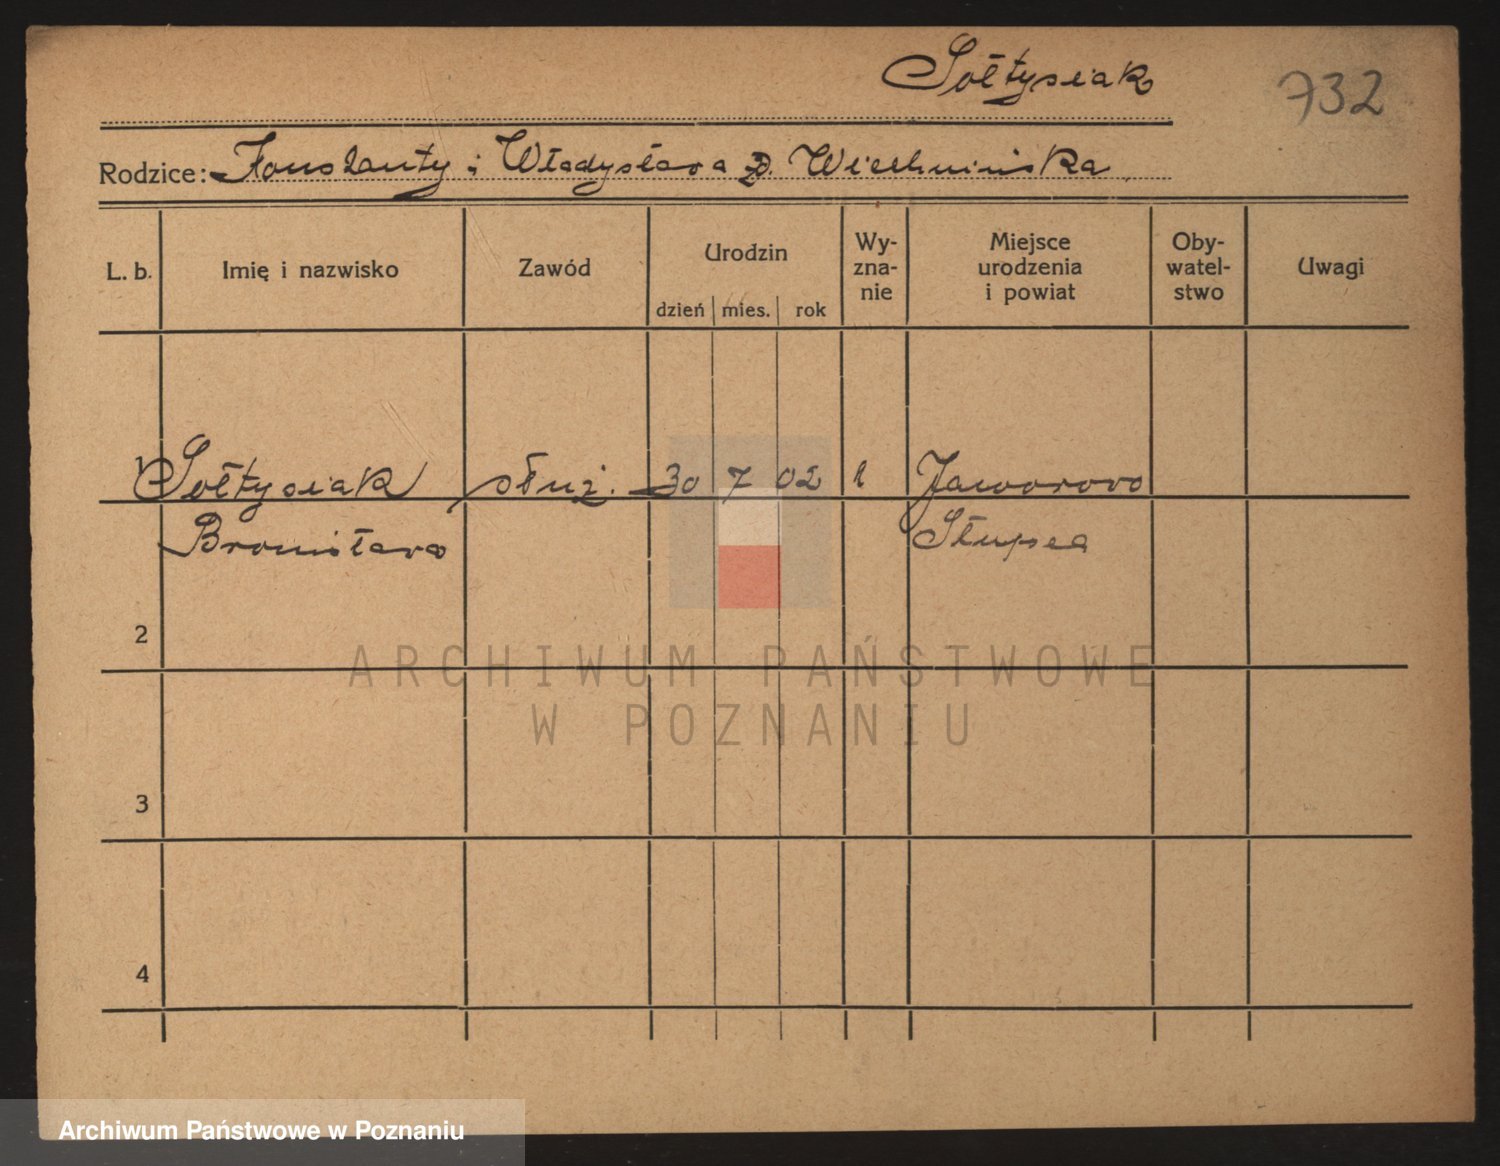 Sołtysiak
732
Rodzice: Konstanty i Władysława z d.
L. b. Imię i nazwisko Zawód Urodzin dzień mies. rok Wyzna-nie Miejsce urodzenia i powiat Oby-watel-stwo Uwagi
1 Sołtysiak służ. 30 7 02 Jaworowo
Bronisława Słupca
2
ARCHIWUM PAŃSTWOWE
W POZNANIU
3
4
Archiwum Państwowe w Poznaniu